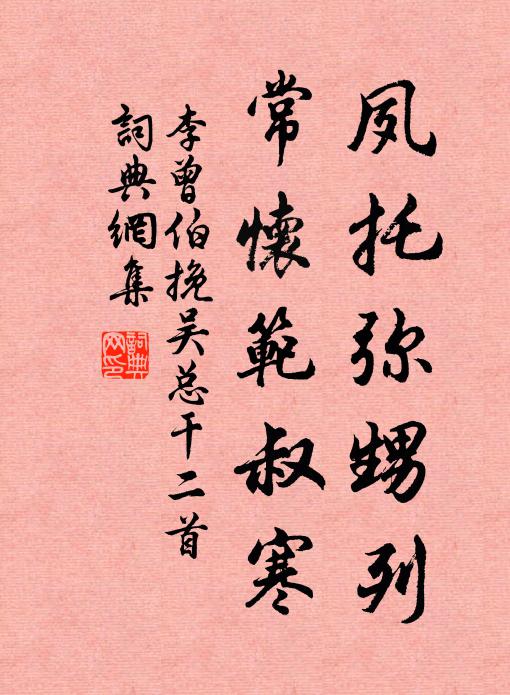 夙托弥甥列
常懷範叔寒
李曾伯挽吴总干二首
詞典網集
詞典網印